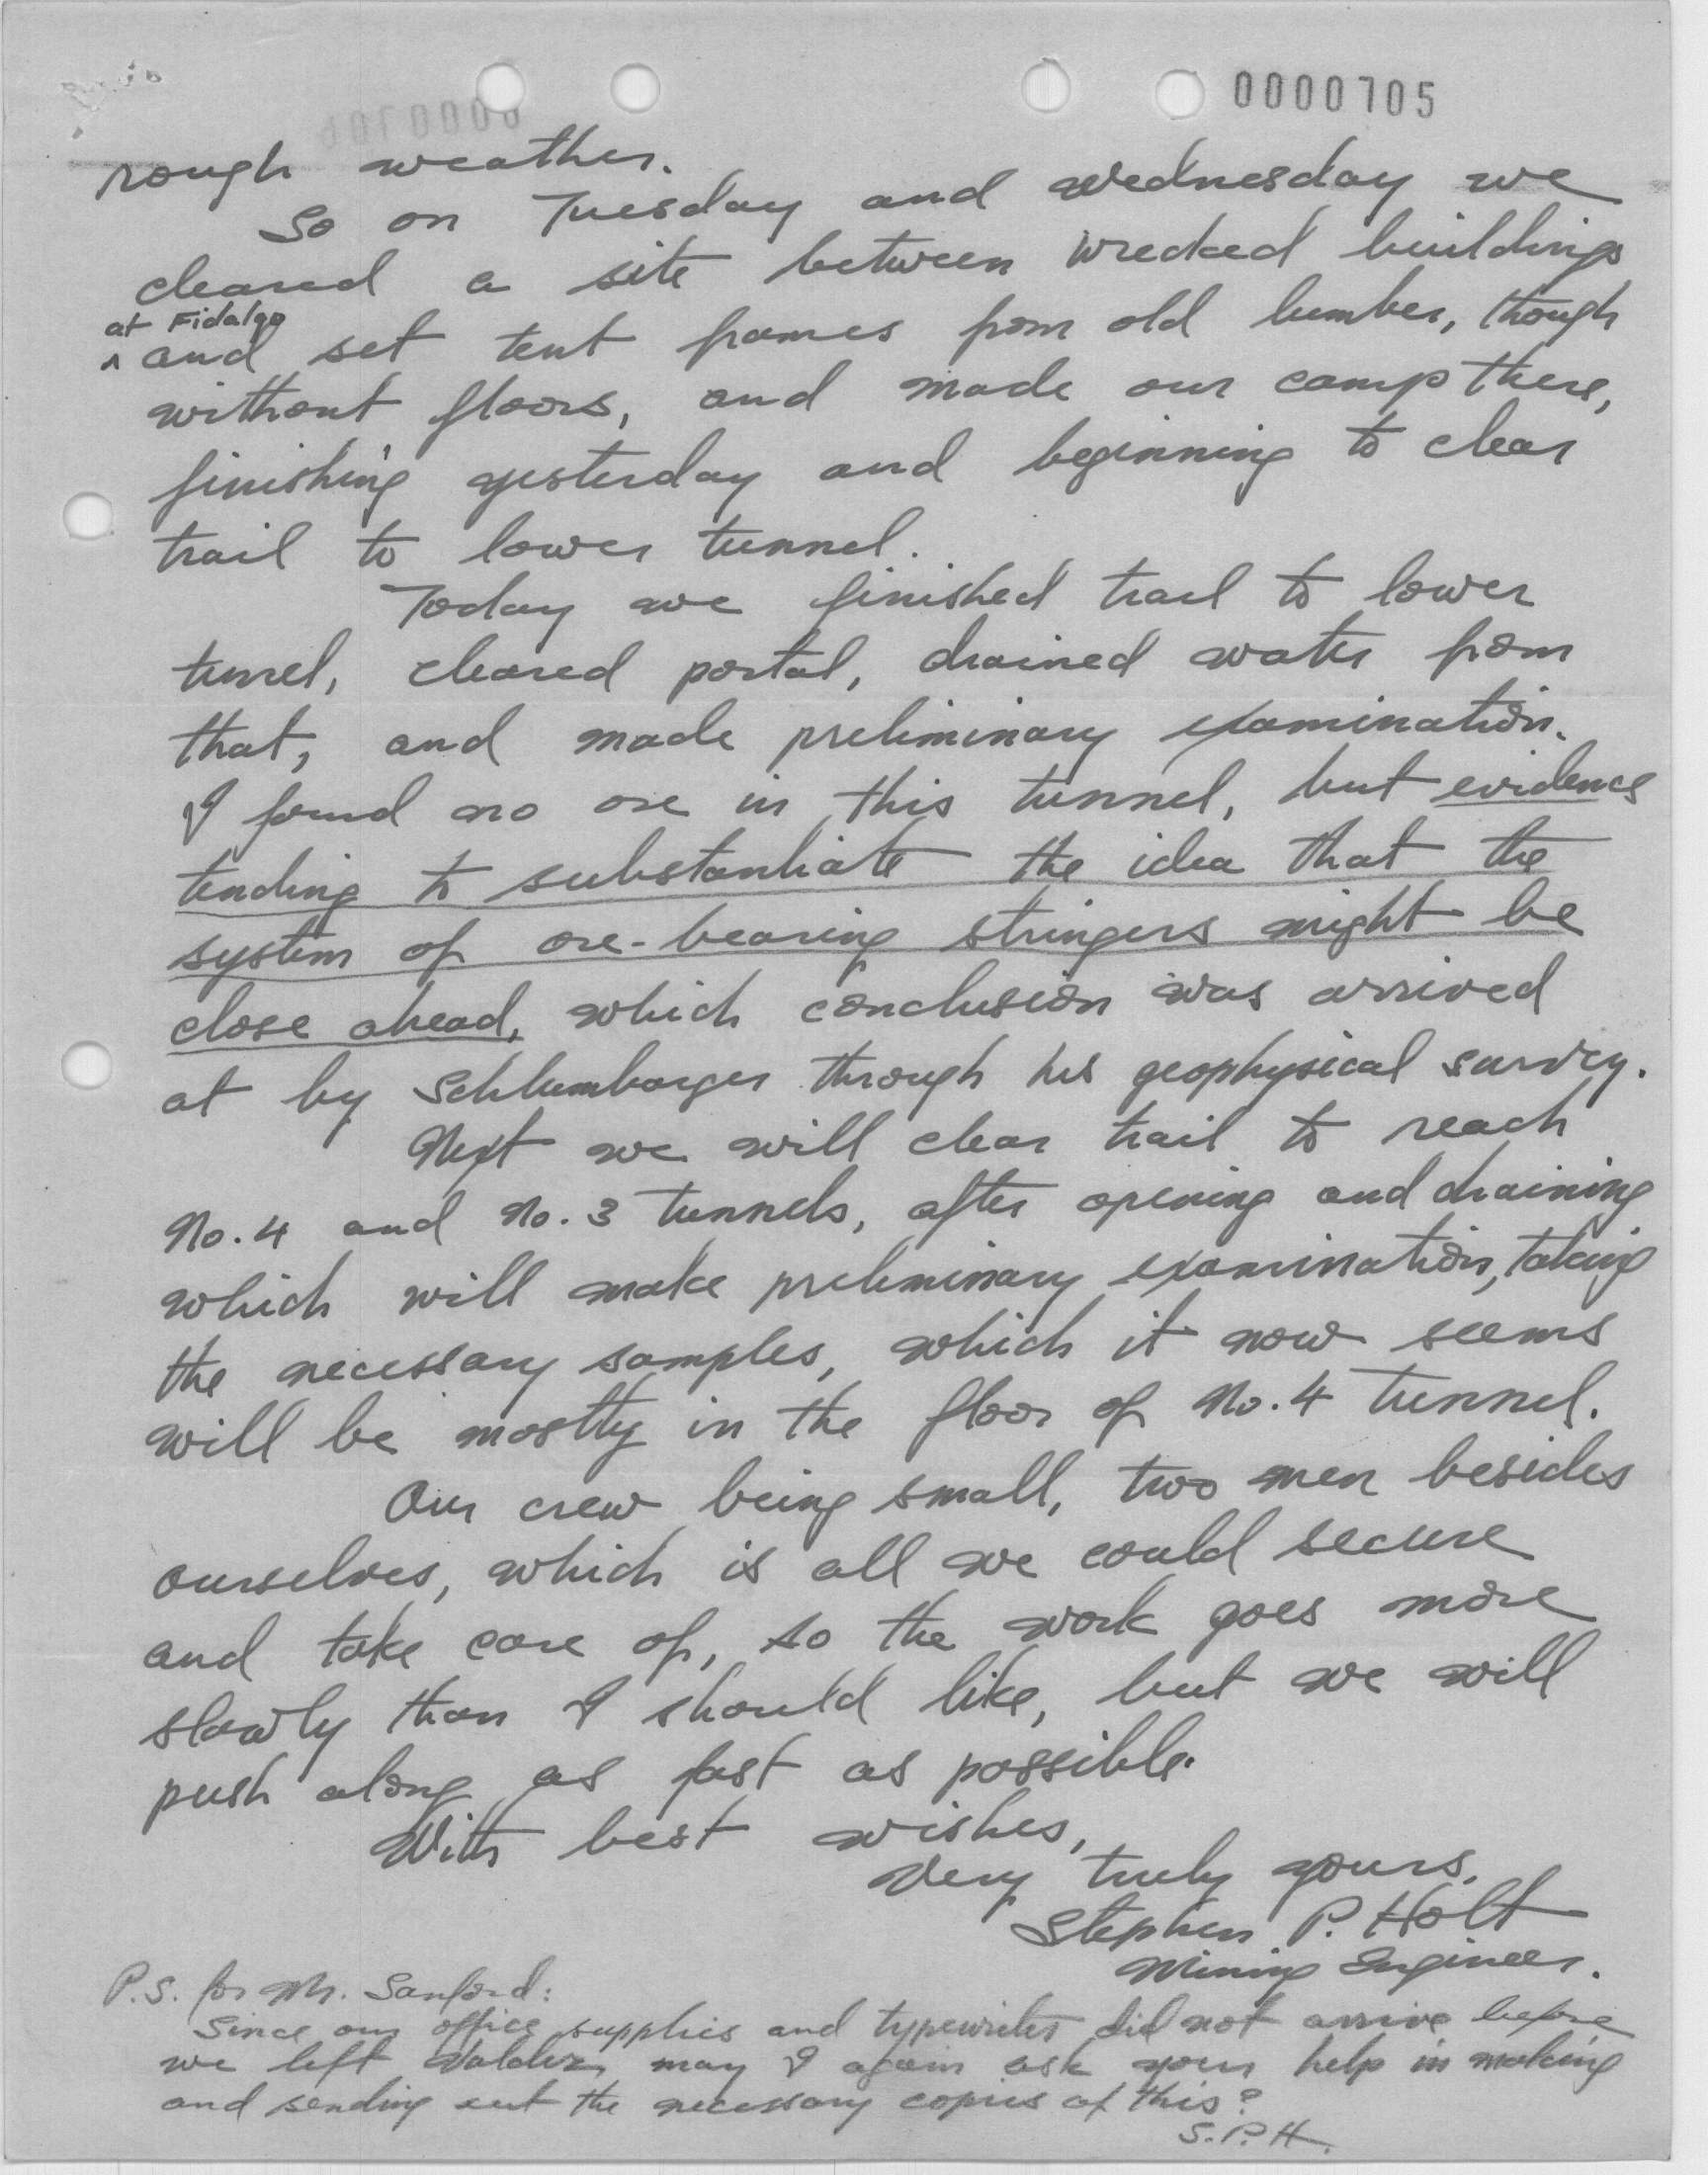 0000705
rough weather.
So on Tuesday and Wednesday we
cleared a site between wrecked buildings
at Fidalgo
^ and set tent frames from old lumber, though
without floors, and made our camp there,
finishing yesterday and beginning to clear
trail to lower tunnel.
Today we finished trail to lower
tunnel, cleared portal, drained water from
that, and made preliminary examination.
I found no ore in this tunnel, but evidence
tending to substantiate the idea that the
system of ore-bearing stringers might be
close ahead, which conclusion was arrived
at by Schlumbarger through his geophysical survey.
Next we will clear trail to reach
No. 4 and No. 3 tunnels, after opening and draining
which will make preliminary examination, taking
the necessary samples, which it now seems
will be mostly in the floor of No. 4 tunnel.
Our crew being small, two men besides
ourselves, which is all we could secure
and take care of, so the work goes more
slowly than I should like, but we will
push along as fast as possible.
With best wishes,
Very truly yours,
Stephen P. Holt
Mining Engineer.
P.S. for Mr. Sanford:
Since our office supplies and typewriter did not arrive before
we left Valdez, may I again ask your help in making
and sending out the necessary copies of this?
S.P.H.